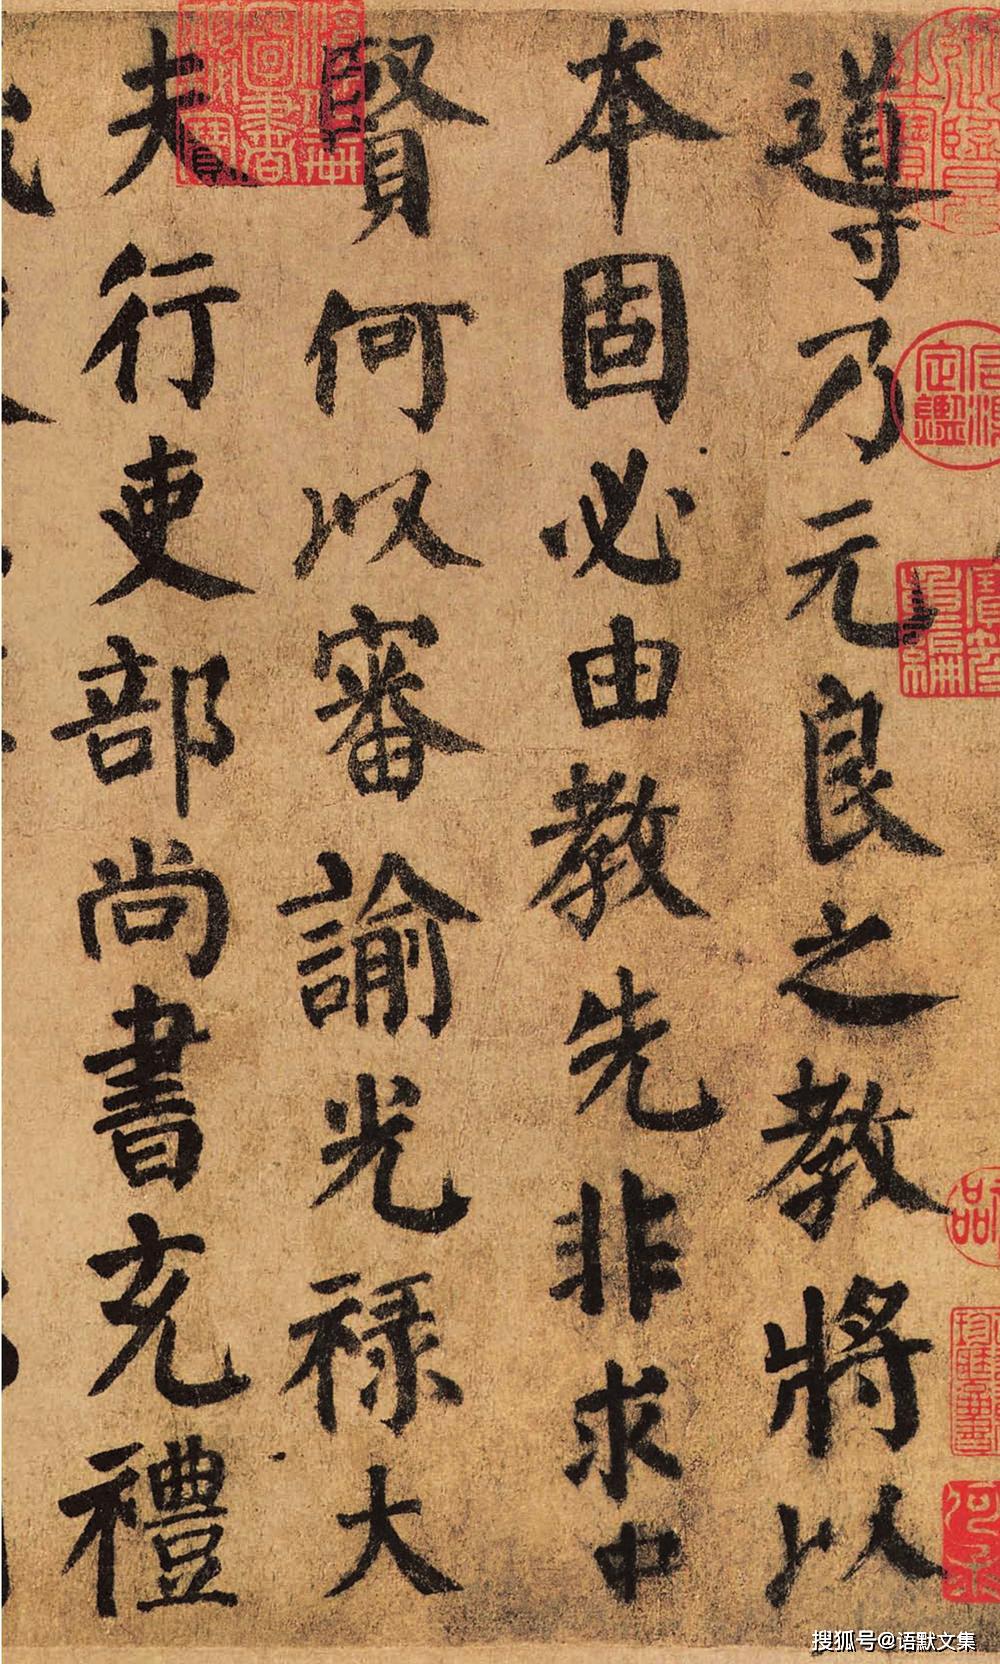 導乃元良之教將以
本固必由教先非求中
賢何以審諭光祿大
夫行吏部尚書充禮
定鑑
重編
搜狐号@语默文集